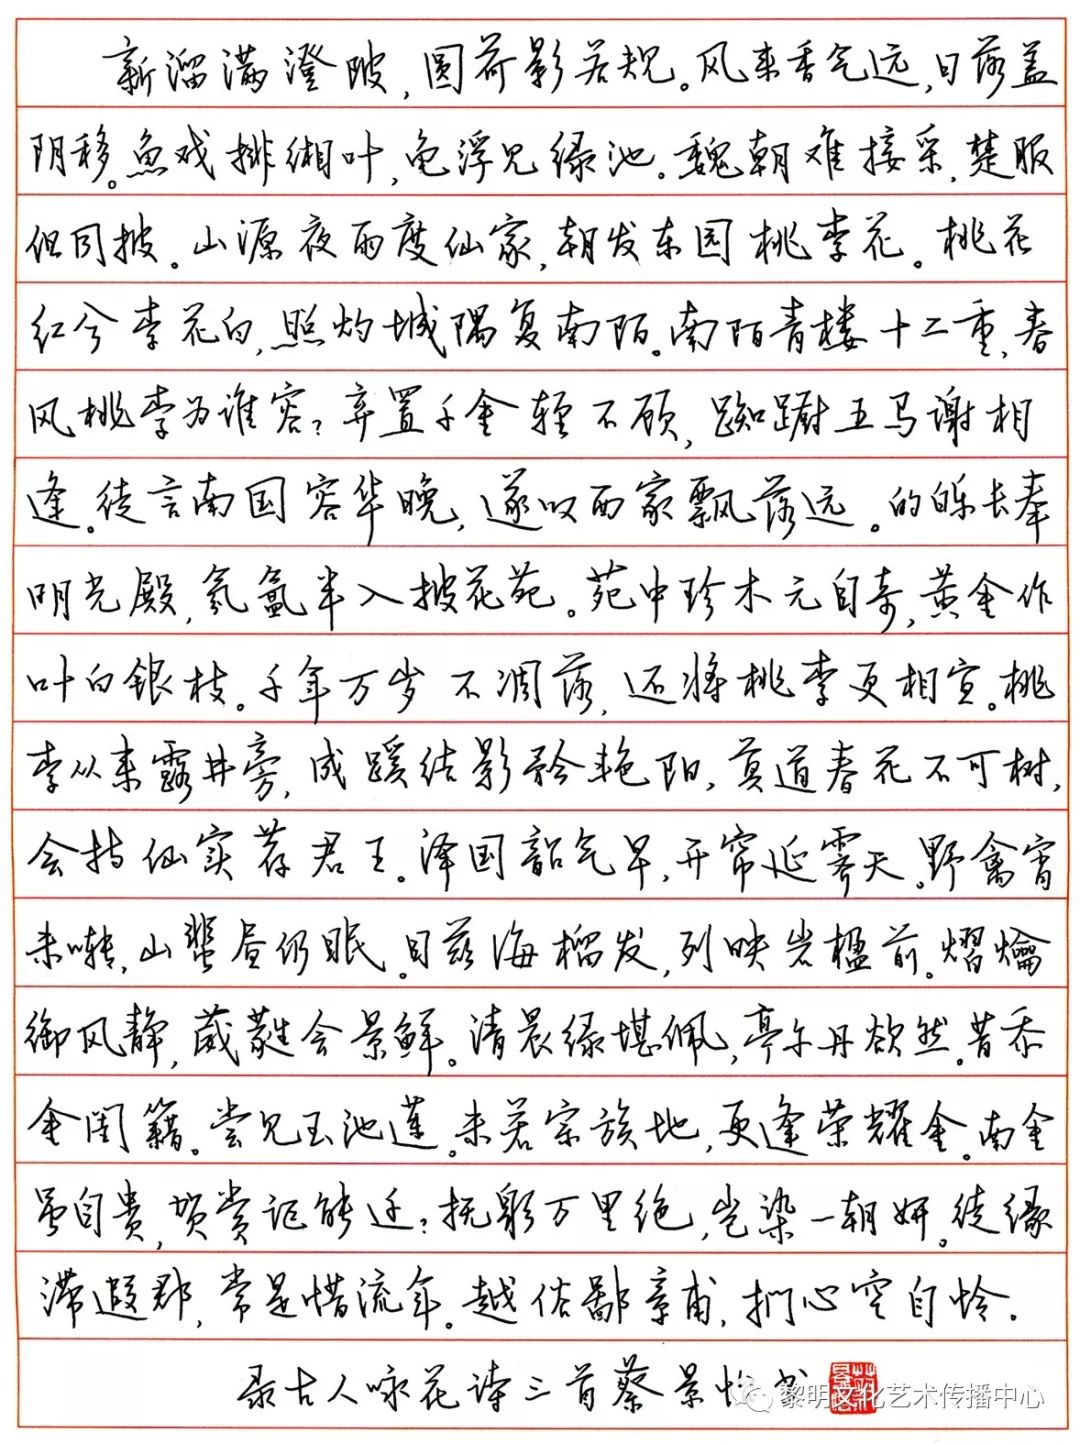 新溜满澄陂，圆荷影若规。风来香气远，日落盖
阴移。鱼戏排缃叶，龟浮见绿池。魏朝难接采，楚服
但同披。山源夜雨度仙家，朝发东园桃李花。桃花
红兮李花白，照灼城隅复南陌。南陌青楼十二重，春
风桃李为谁容？弃置千金轻不顾，踟蹰五马谢相
逢。徒言南国容华晚，遂叹西家飘落远。的皪长奉
明光殿，氛氲半入披花苑。苑中珍木元自奇，黄金作
叶白银枝。千年万岁不凋落，还将桃李更相宜。桃
李从来露井旁，成蹊结影矜艳阳，莫道春花不可树，
会持仙实荐君王。泽国韶气早，开帘延霁天。野禽宵
未啭，山蜚昼仍眠。目兹海榴发，列映岩楹前。熠爚
御风静，葳蕤含景鲜。清晨绿堪佩，亭午丹欲然。昔忝
金闺籍。尝见玉池莲。未若宗族地，更逢荣耀全。南金
虽自贵，贺赏讵能迁？抚躬万里绝，岂染一朝妍。徒缘
滞遐郡，常是惜流年。越俗鄙章甫，扪心空自怜。
录古人咏花诗三首蔡景怡书
黎明文化艺术传播中心